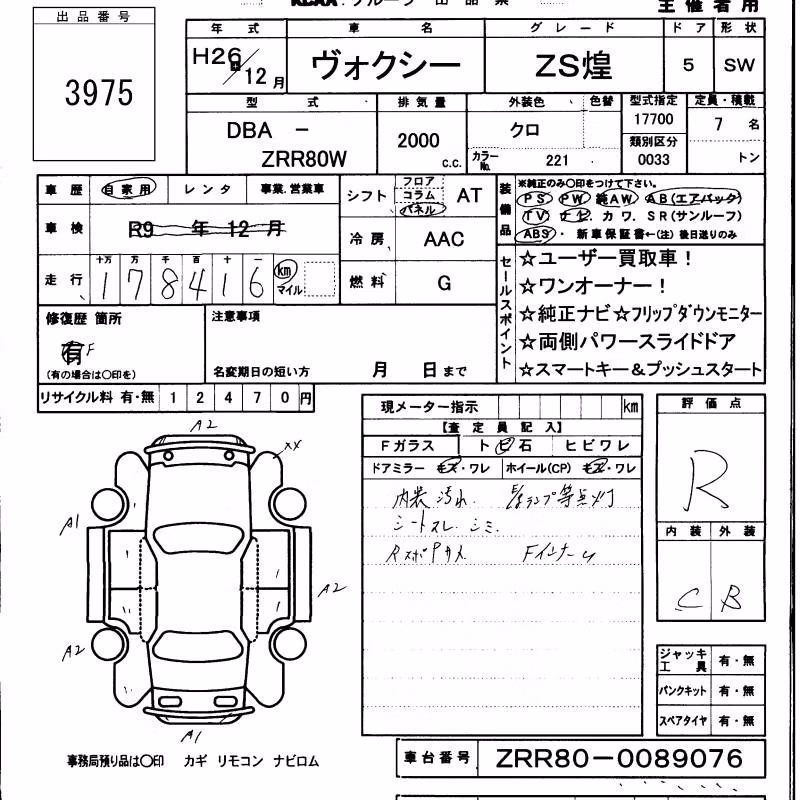 出品番号
3975
主催者用
年式 車名 グレード ドア 形状
H26/12月 ヴォクシー ZS煌 5 SW
型式 排気量 外装色 色替 型式指定 定員・積載
DBA - ZRR80W 2000 c.c. クロ 17700 7名
カラーNo. 221 類別区分 0033 トン
車歴 自家用 レンタ 事業.営業車
車検 R9年12月
走行 十万 万 千 百 十 一
178416 km マイル
シフト フロア コラム パネル AT
冷房 AAC
燃料 G
装備品 ※純正のみ〇印をつけて下さい。
PS PW 純AW AB(エアバック)
TV ナビ カワ SR(サンルーフ)
ABS・ 新車保証書←(注)後日送りのみ
セールスポイント
☆ユーザー買取車!
☆ワンオーナー!
☆純正ナビ☆フリップダウンモニター
☆両側パワースライドドア
☆スマートキー&プッシュスタート
修復歴 箇所
有 F
(有の場合は〇印を)
注意事項
名変期日の短い方 月 日まで
リサイクル料 有・無 12470円
現メーター指示 km
【査定員記入】
Fガラス トビ石 ヒビワレ
ドアミラー キズ・ワレ ホイール(CP) キズ・ワレ
内装汚れ.
シートスレ. シミ.
Fインナー
評価点
R
内装 外装
C B
A2
XX
A1
A2
A2
A1
ジャッキ工具 有・無
パンクキット 有・無
スペアタイヤ 有・無
事務局預り品は〇印 カギ リモコン ナビロム
車台番号 ZRR80-0089076